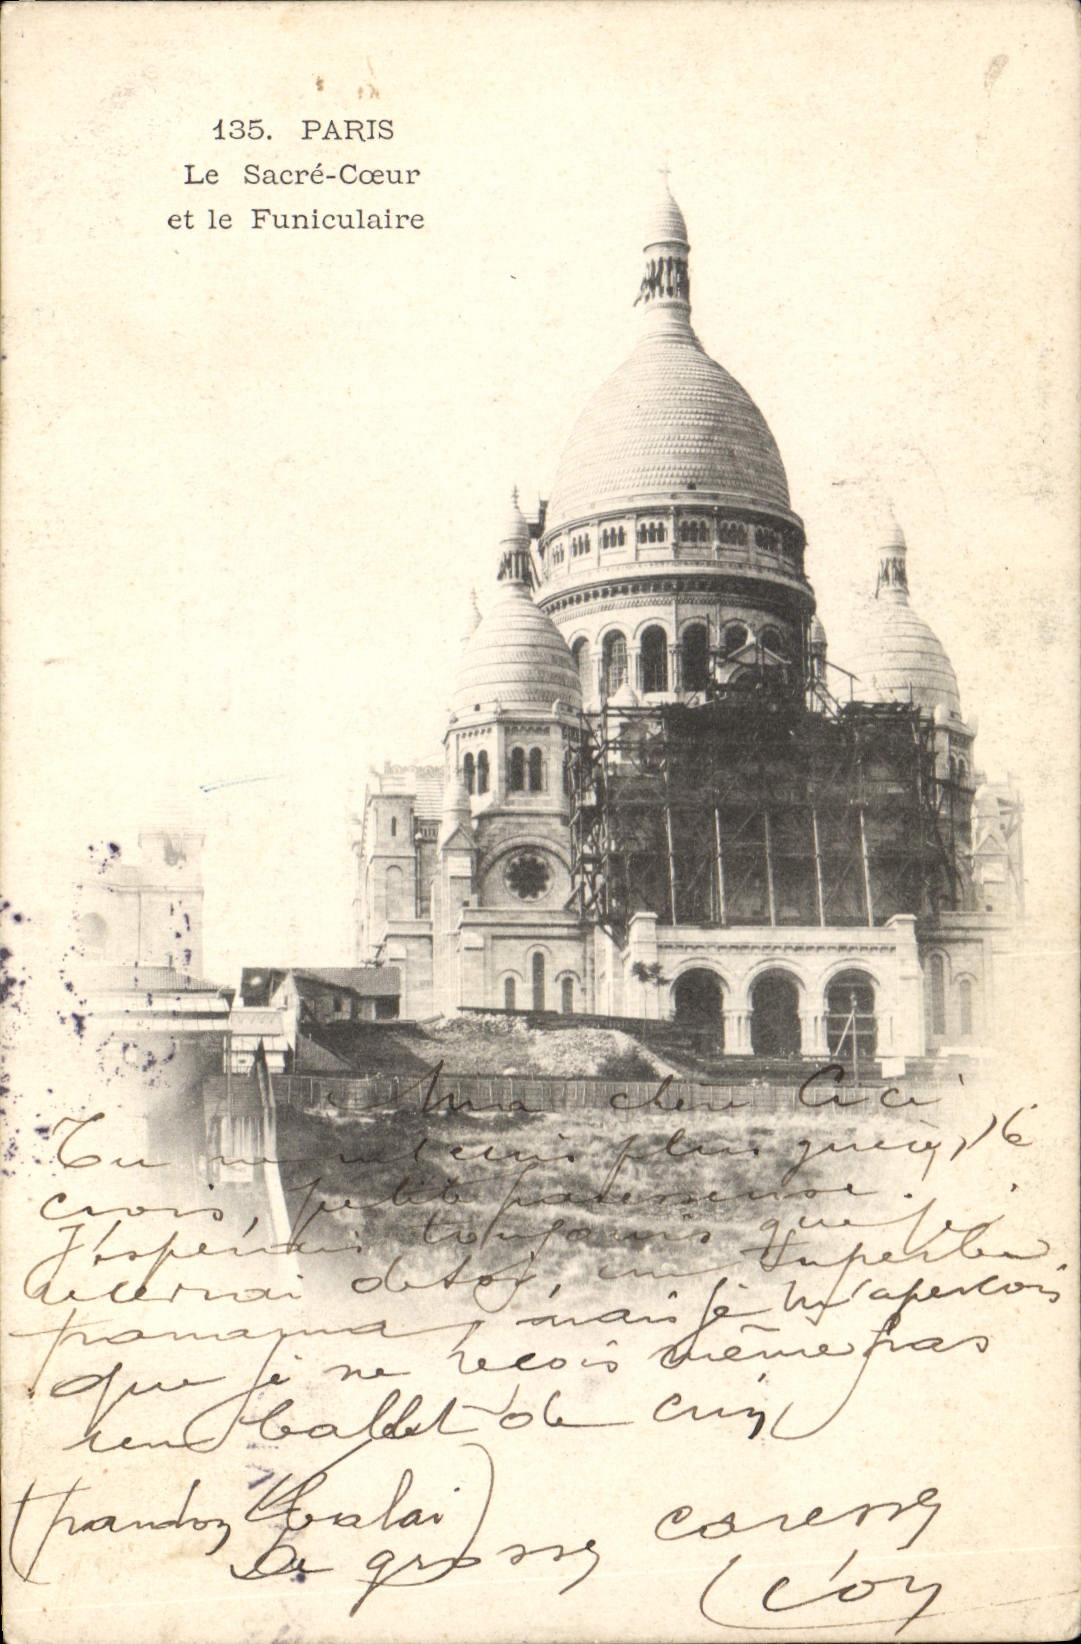 135. PARIS
Le Sacré-Cœur
et le Funiculaire
Ma chère Cici
Tu ne m'écris plus guère, je
crois, petite paresseuse.
J'espérais toujours que je
recevrai de toi, un superbe
panama, mais je m'aperçois
que je ne reçois même pas
un ballet de crin
(pardon balai)
De grosses caresses